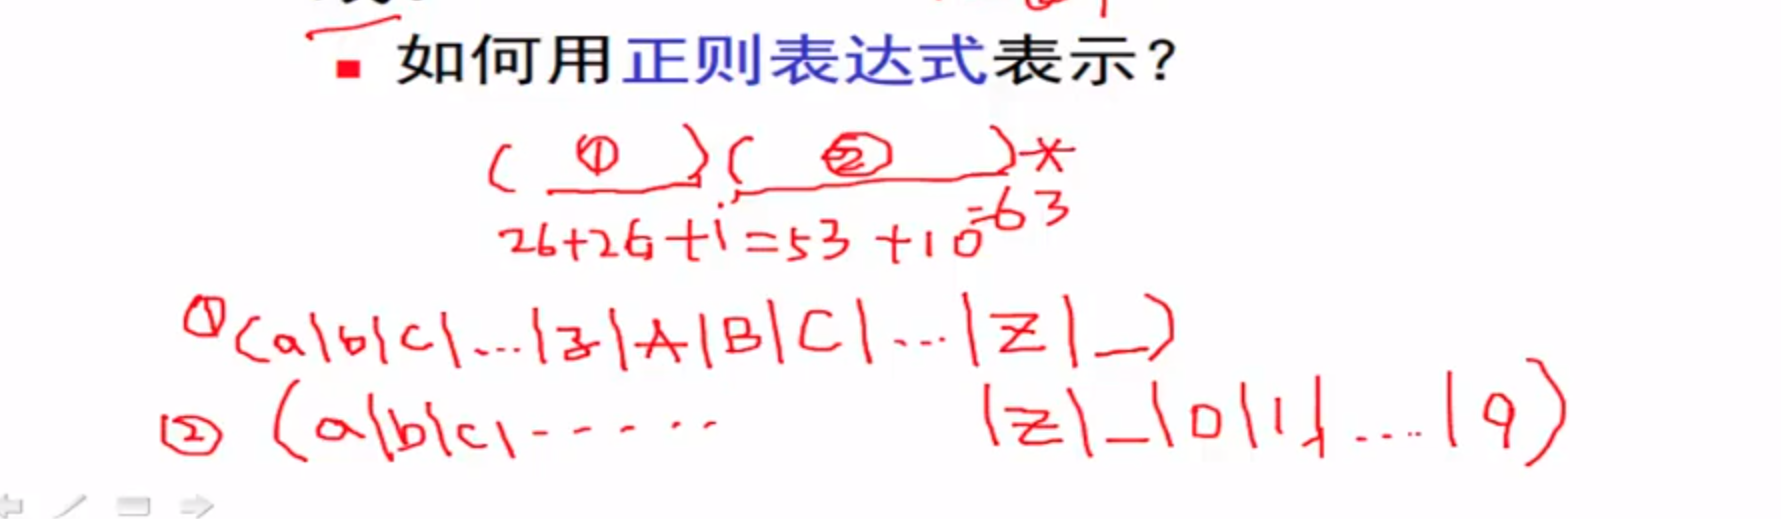 如何用正则表达式表示?
( ① )( ② )*
26+26+1=53+10=63
①(a|b|c|...|z|A|B|C|...|Z|_)
②(a|b|c|...... |Z|_|0|1|....|9)